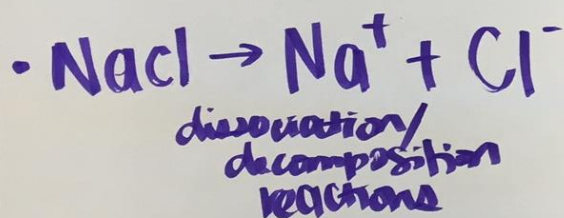 • Nacl → Na⁺ + Cl⁻
dissociation/
decomposition
reactions